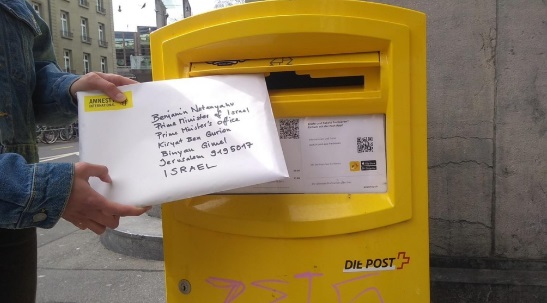 AMNESTY
INTERNATIONAL
Benjamin Netanyahu
Prime Minister of Israel
Prime Minister's Office
Kiryat Ben Gurion
Binyan Gimel
Jerusalem 9195017
ISRAEL
DIE POST